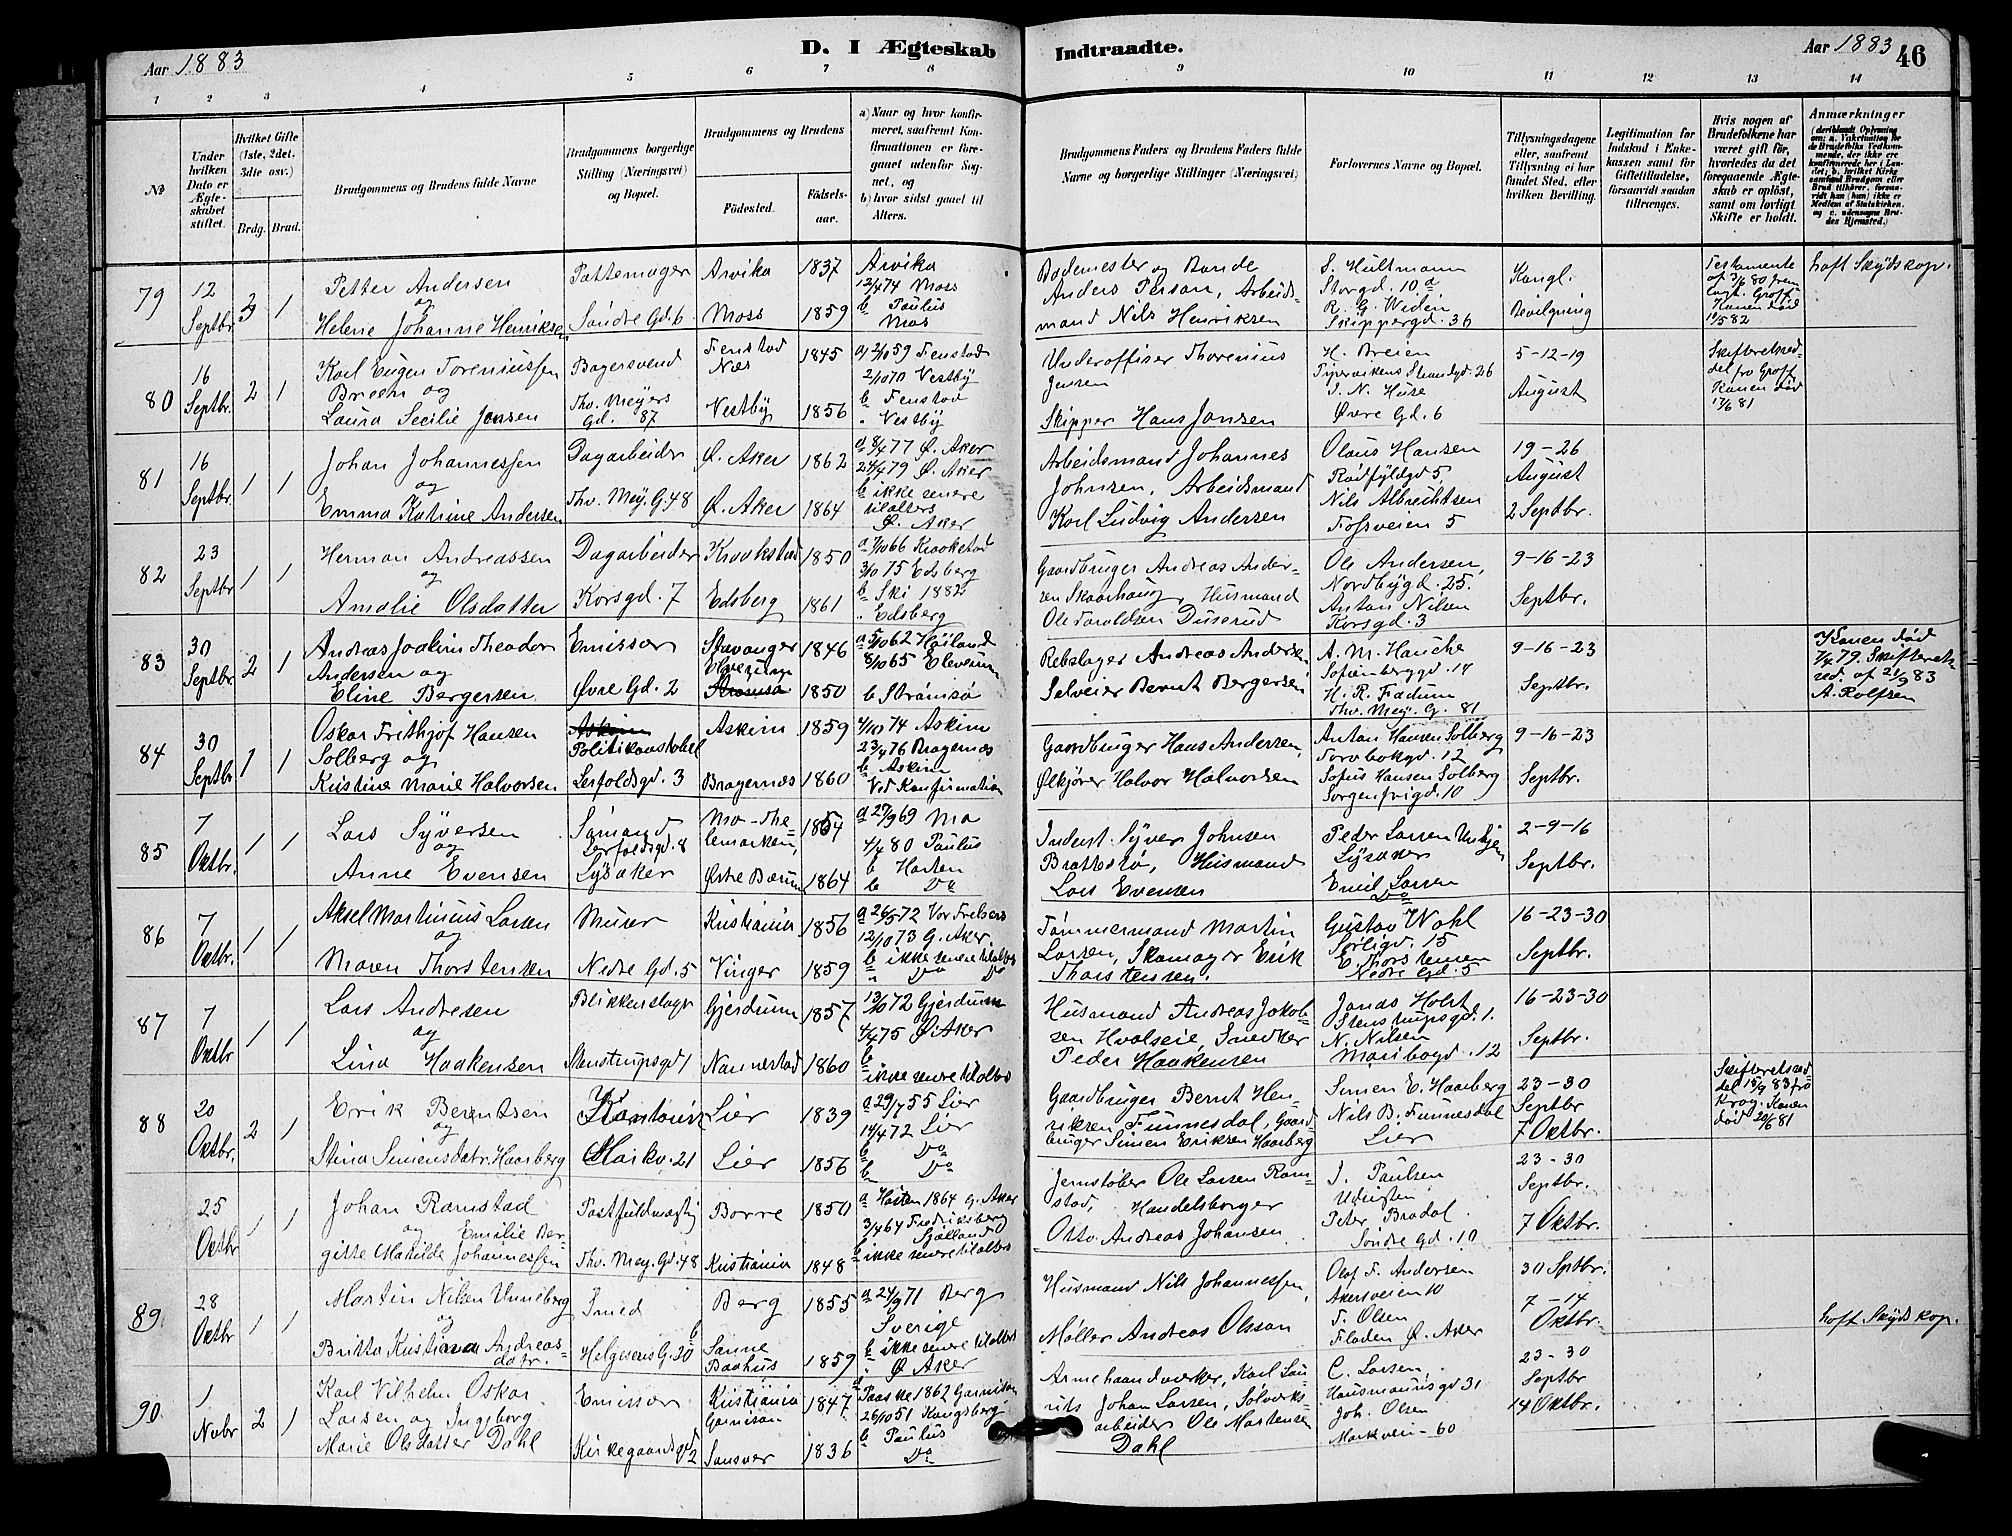 Aar 1883
D. I Ægteskab
Indtraadte.
Aar 1883
46
1 2 3 4 5 6 7 8
9 10 11 12 13 14
No
Under hvilken Dato er Ægteskabet stiftet.
Hvilket Gifte (1ste, 2det, 3dte osv.)
Brdg. Brud.
Brudgommens og Brudens fulde Navne
Brudgommens borgerlige Stilling (Næringsvei) og Bopæl.
Brudgommens og Brudens
Fødested.
Fødselsaar.
a) Naar og hvor konfirmeret, saafremt Konfirmationen er foregaaet udenfor Sognet, og
b) hvor sidst gaaet til Alters.
Brudgommens Faders og Brudens Faders fulde Navne og borgerlige Stillinger (Næringsvei)
Forlovernes Navne og Bopæl.
Tillysningsdagene eller, saafremt Tillysning ei har fundet Sted, efter hvilken Bevilling.
Legitimation for Indskud i Enkekassen samt for Giftetilladelse, forsaavidt saadan tiltrænges.
Hvis nogen af Brudefolkene har været gift før, hvorledes da det foregaaende Ægteskab er opløst, samt om lovligt Skifte er holdt.
Anmærkninger
79
12 Septbr
3 1
Petter Andersen
og
Helene Johanne Henriksen
Pottemager
Søndre Gd. 6
Arvika 1837
Moss 1859
Arvika
12/4 74 Moss
b Paulus
Mos
Bødemester og Bonde
Anders Person, Arbeids-
mand Nils Henriksen
S. Hultmann
Storgd. 10 a
R. G. Widén
Skippergd. 36
Kongl.
Bevilgning
Testamente
10/5 82
haft Skyds kop.
80
16 Septbr.
2 1
Karl Eugen Toreniussen
Breem og
Laura Secilie Jensen
Bagersvend
Thv. Meyers
Gd. 87
Fenstad
Næs 1845
Vestby 1856
2/10 59 Fenstad
2/10 70 Vestby
b Fenstad
" Vestby
Underoffiser Thorenius
Jensen
Skipper Hans Jansen
H. Breien
J. N. Huse
Øvre Gd. 6
5-12-19
August
Kanen død
17/6 81
81
16 Septbr.
1 1
Johan Johannessen
og
Emma Katrine Andersen
Dagarbeider
Thv. Mey. G. 48
Ø. Aker 1862
Ø. Aker 1864
a 8/4 77 Ø. Aker
24/4 79 Ø. Aker
b ikke senere
tilalters
Ø. Aker
Arbeidsmand Johannes
Johnsen, Arbeidsmand
Karl Ludvig Andersen
Olaus Hansen
Rødfyldgd 5
Nils Albrechtsen
Fossveien 5
19-26
August
2 Septbr.
82
23 Septbr
1 1
Herman Andreassen
og
Amalie Olsdatter
Dagarbeider
Korsgd. 7
Kraakstad 1850
Edsberg 1861
a 7/10 66 Kraakstad
3/10 75 Edsberg
b Ski 1882
" Edsberg
Gaardbruger Andreas Ander-
sen Skaarhaug, Husmand
Ole Taraldsen Duserud
Ole Andersen,
Nordbygd. 25.
Anton Nilsen
Korsgd. 3
9-16-23
Septbr.
83
30 Septbr.
2 1
Andreas Joakim Theodor
Andersen og
Eline Bergersen
Emissær
Øvre Gd. 2
Stavanger 1846
1850
a 5/10 62 Høiland
8/10 65
b Strømsø
Rebslager Andreas Andersen
Selveier Bernt Bergersen
A. M. Hauche
Sofienberggd. 14
H. R. Fladum
Thv. Mey. G. 81
9-16-23
Septbr.
Kanen død
7/4 79. Skifteretsn
A. Rolfsen
84
30 Septbr
1 1
Oskar Frithjof Hansen
Solberg og
Kristine Marie Halvorsen
Politikonstabel
Lerfoldsgd. 3
Askim 1859
Bragernæs 1860
4/10 74 Askim
23/4 76 Bragernæs
b Askim
Ved Konfirmation
Gaardbruger Hans Andersen,
Ølkjører Halvor Halvorsen
Anton Hansen Solberg
Torvbakgd. 12
Sofus Hansen Solberg
Sorgenfrigd. 10
9-16-23
Septbr.
85
7 Oktbr.
1 1
Lars Syversen
og
Anne Evensen
Sømand
Lerfoldsgd. 8
Lysaker
Mo-The-
lemarken, 1854
Østre Bærum 1864
a 27/9 69 Mo
4/4 80 Paulus
b Horten
b Do
Inderst Syver Johnsen
Brattestø, Husmand
Lars Evensen
Peder Larsen
Lysaker
Emil Larsen
Do
2-9-16
Septbr.
86
7 Oktbr.
1 1
Aksel Martinius Larsen
og
Maren Thorstensen
Murer
Nedre Gd. 5
Kristiania 1856
Vinger 1859
a 26/5 72 Vor Frelsers
12/10 73 G. Aker
b ikke senere tilalters
" Do Do
Tømmermand Martin
Larsen, Skomager Erik
Thorstensen.
Gustav Wohl
Sørligd. 15
E. Thorstensen
Nedre Gd. 5
16-23-30
Septbr.
87
7 Oktbr
1 1
Lars Andresen
og
Lina Haakensen
Blikkenslager
Stenstrupsgd 1
Gjerdrum 1857
Nannestad 1860
13/10 72 Gjerdrum
4/4 75 Ø. Aker
b
ikke senere tilalters
Husmand Andreas Jakob-
sen Hvalseie, Snedker
Peder Haakensen
Jonas Holst
Stenstrupsgd. 1.
N. Nilsen
Maribogd. 12
16-23-30
Septbr.
88
20 Oktbr.
2 1
Erik Berntsen
og
Stina Simensdatr. Haarberg
Markv. 21
Lier 1839
Lier 1856
a 29/7 55 Lier
14/4 72 Lier
b Do
b Do
Gaardbruger Bernt Hen-
riksen Funnesdal, Gaard-
bruger Simen Eriksen Haarberg
Simen E. Haarberg
Nils B. Funnesdal
Lier
23-30
Septbr
7 Oktbr.
Skifteretsed-
del 15/9 83 fra
Krag. Kanen
død 20/6 81
25 Oktbr
1 1
Johan Ramstad
og Emilie Ber-
gitte Matilde Johannessen
Postfuldmægtig
Thv. Mey. Gd. 48
Borre 1850
Kristiania 1848
a Høsten 1864 G. Aker
3/4 64 Fredriksberg
Sjælland
b ikke senere tilalters
Jernstøber Ole Larsen Ram-
stad, Handelsborger
Otto Andreas Johansen
J. Paulsen
Peter Bradal
Søndre Gd. 10
23-30
Septbr.
7 Oktbr.
89.
28 Oktbr
1 1
Martin Nilsen Unneberg
og
Britta Kristiana Andreas-
datr.
Smed
Helgesens G. 20
Berg 1855
Sanne
Baahus 1859
a 24/9 71 Berg
Sverige
b ikke senere tilalters
" Ø. Aker
Husmand Nils Johannessen,
Møller Andreas Olsson
Olaf F. Andersen
Akersveien 10
F. Olsen
Fladen Ø. Aker
30 Sptbr.
7-14
Oktbr.
haft Skyds kop.
90.
1 Nvbr
2 1
Karl Vilhelm Oskar
Larsen og Ingeborg
Marie Olsdatter Dahl
Emissær
Kirkegaardsgd 2
Kristiania
Garnison 1847
Sansvær 1836
a Paaske 1862 Garnison
26/10 51 Kongsberg
b Paulus
Do
Armehaandværker, Karl Lau-
rits Johan Larsen, Sølvverks-
arbeider Ole Mortensen
Dahl
C. Larsen
Hausmannsgd 31
Joh. Olsen
Markvei-60
23-30
Septbr
14 Oktbr.